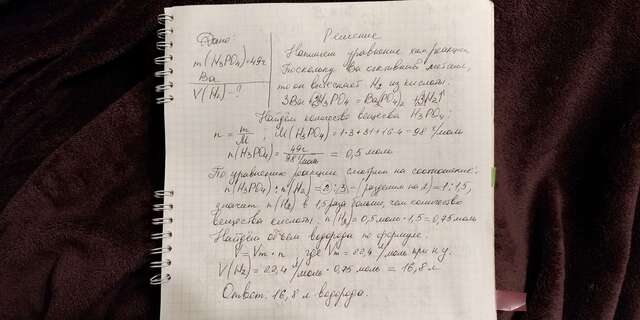 Дано:
m(H₃PO₄)=49г
Ba
V(H₂)-?
Решение
Напишем уравнение хим реакции
Поскольку Ba активный металл,
то он вытесняет H₂ из кислоты.
3Ba+2H₃PO₄=Ba₃(PO₄)₂+3H₂↑
Найдём количество вещества H₃PO₄:
n=m/M, M(H₃PO₄)=1·3+31+16·4=98 г/моль
n(H₃PO₄)=49г/98г/моль=0,5 моль
По уравнению реакции смотрим на соотношение:
n(H₃PO₄):n(H₂)=2:3=(разделим на 2)=1:1,5,
значит n(H₂) в 1,5 раза больше, чем количество
вещества кислоты: n(H₂)=0,5моль·1,5=0,75моль
Найдём объём водорода по формуле:
V=Vm·n, где Vm=22,4 л/моль при н.у.
V(H₂)=22,4 л/моль·0,75 моль=16,8 л
Ответ: 16,8 л водорода.